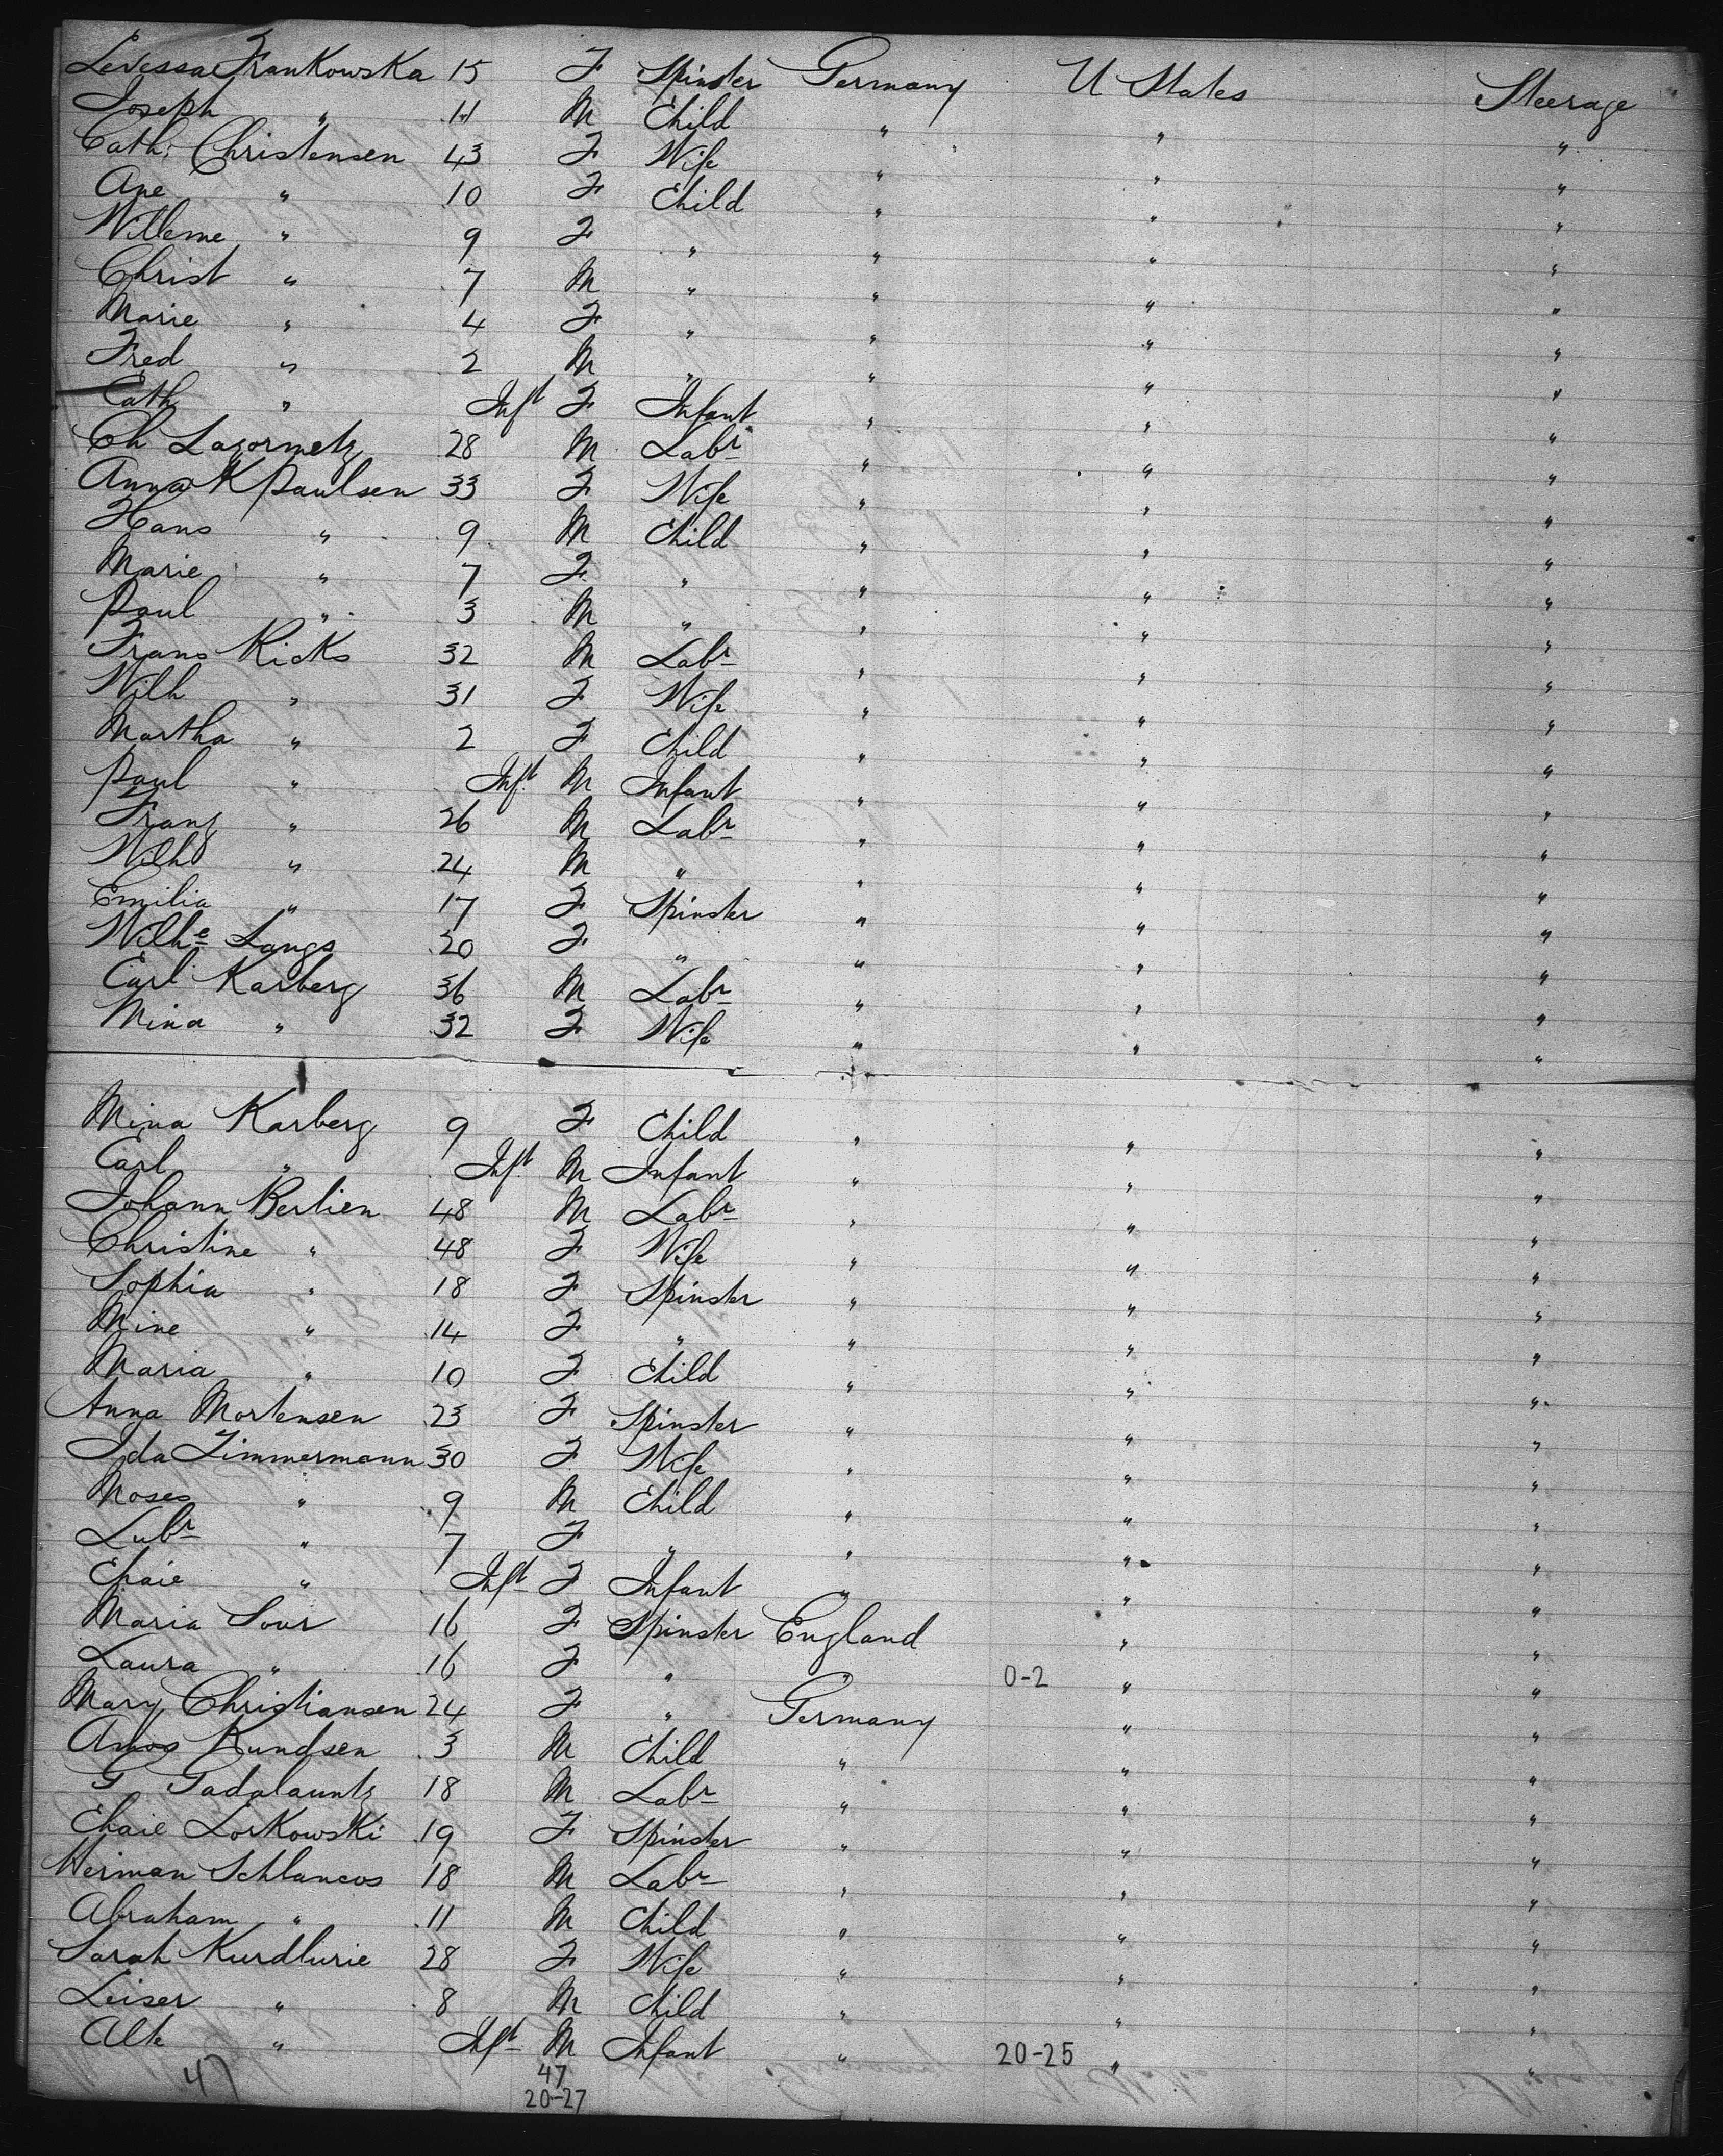 Levessa Frankowska 15 F Spinster Germany U States Steerage
Joseph " 11 M Child " " "
Cath: Christensen 43 F Wife " " "
Ane " 10 F Child " " "
Willeme " 9 F " " " "
Christ " 7 M " " " "
Marie " 4 F " " " "
Fred " 2 M " " " "
Cath " Inft F Infant " " "
Ch Lazormetz 28 M Labr " " "
Anna K Paulsen 33 F Wife " " "
Hans " 9 M Child " " "
Marie " 7 F " " " "
Paul " 3 M " " " "
Frans Ricks 32 M Labr " " "
Wilh " 31 F Wife " " "
Martha " 2 F Child " " "
Paul " Inft M Infant " " "
Franz " 26 M Labr " " "
Wilh " 24 M " " " "
Emilia " 17 F Spinster " " "
Wilhe Langs 20 F " " " "
Carl Karberg 36 M Labr " " "
Mina " 32 F Wife " " "
Mina Karberg 9 F Child " " "
Carl " Inft M Infant " " "
Johann Berlien 48 M Labr " " "
Christine " 48 F Wife " " "
Sophia " 18 F Spinster " " "
Mine " 14 F " " " "
Maria " 10 F Child " " "
Anna Mortensen 23 F Spinster " " "
Ida Zimmermann 30 F Wife " " "
Moses " 9 M Child " " "
Lubr " 7 F " " " "
Chaie " Inft F Infant " " "
Maria Sour 16 F Spinster England " "
Laura " 16 F " " 0-2 " "
Mary Christiansen 24 F " Germany " "
Amos Kundsen 3 M Child " " "
G. Gadalauntz 18 M Labr " " "
Chaie Lorkowski 19 F Spinster " " "
Herman Schlancos 18 M Labr " " "
Abraham " 11 M Child " " "
Sarah Kurdlurie 28 F Wife " " "
Leiser " 8 M Child " " "
Alte " Inft M Infant " 20-25 " "
47 47
20-27